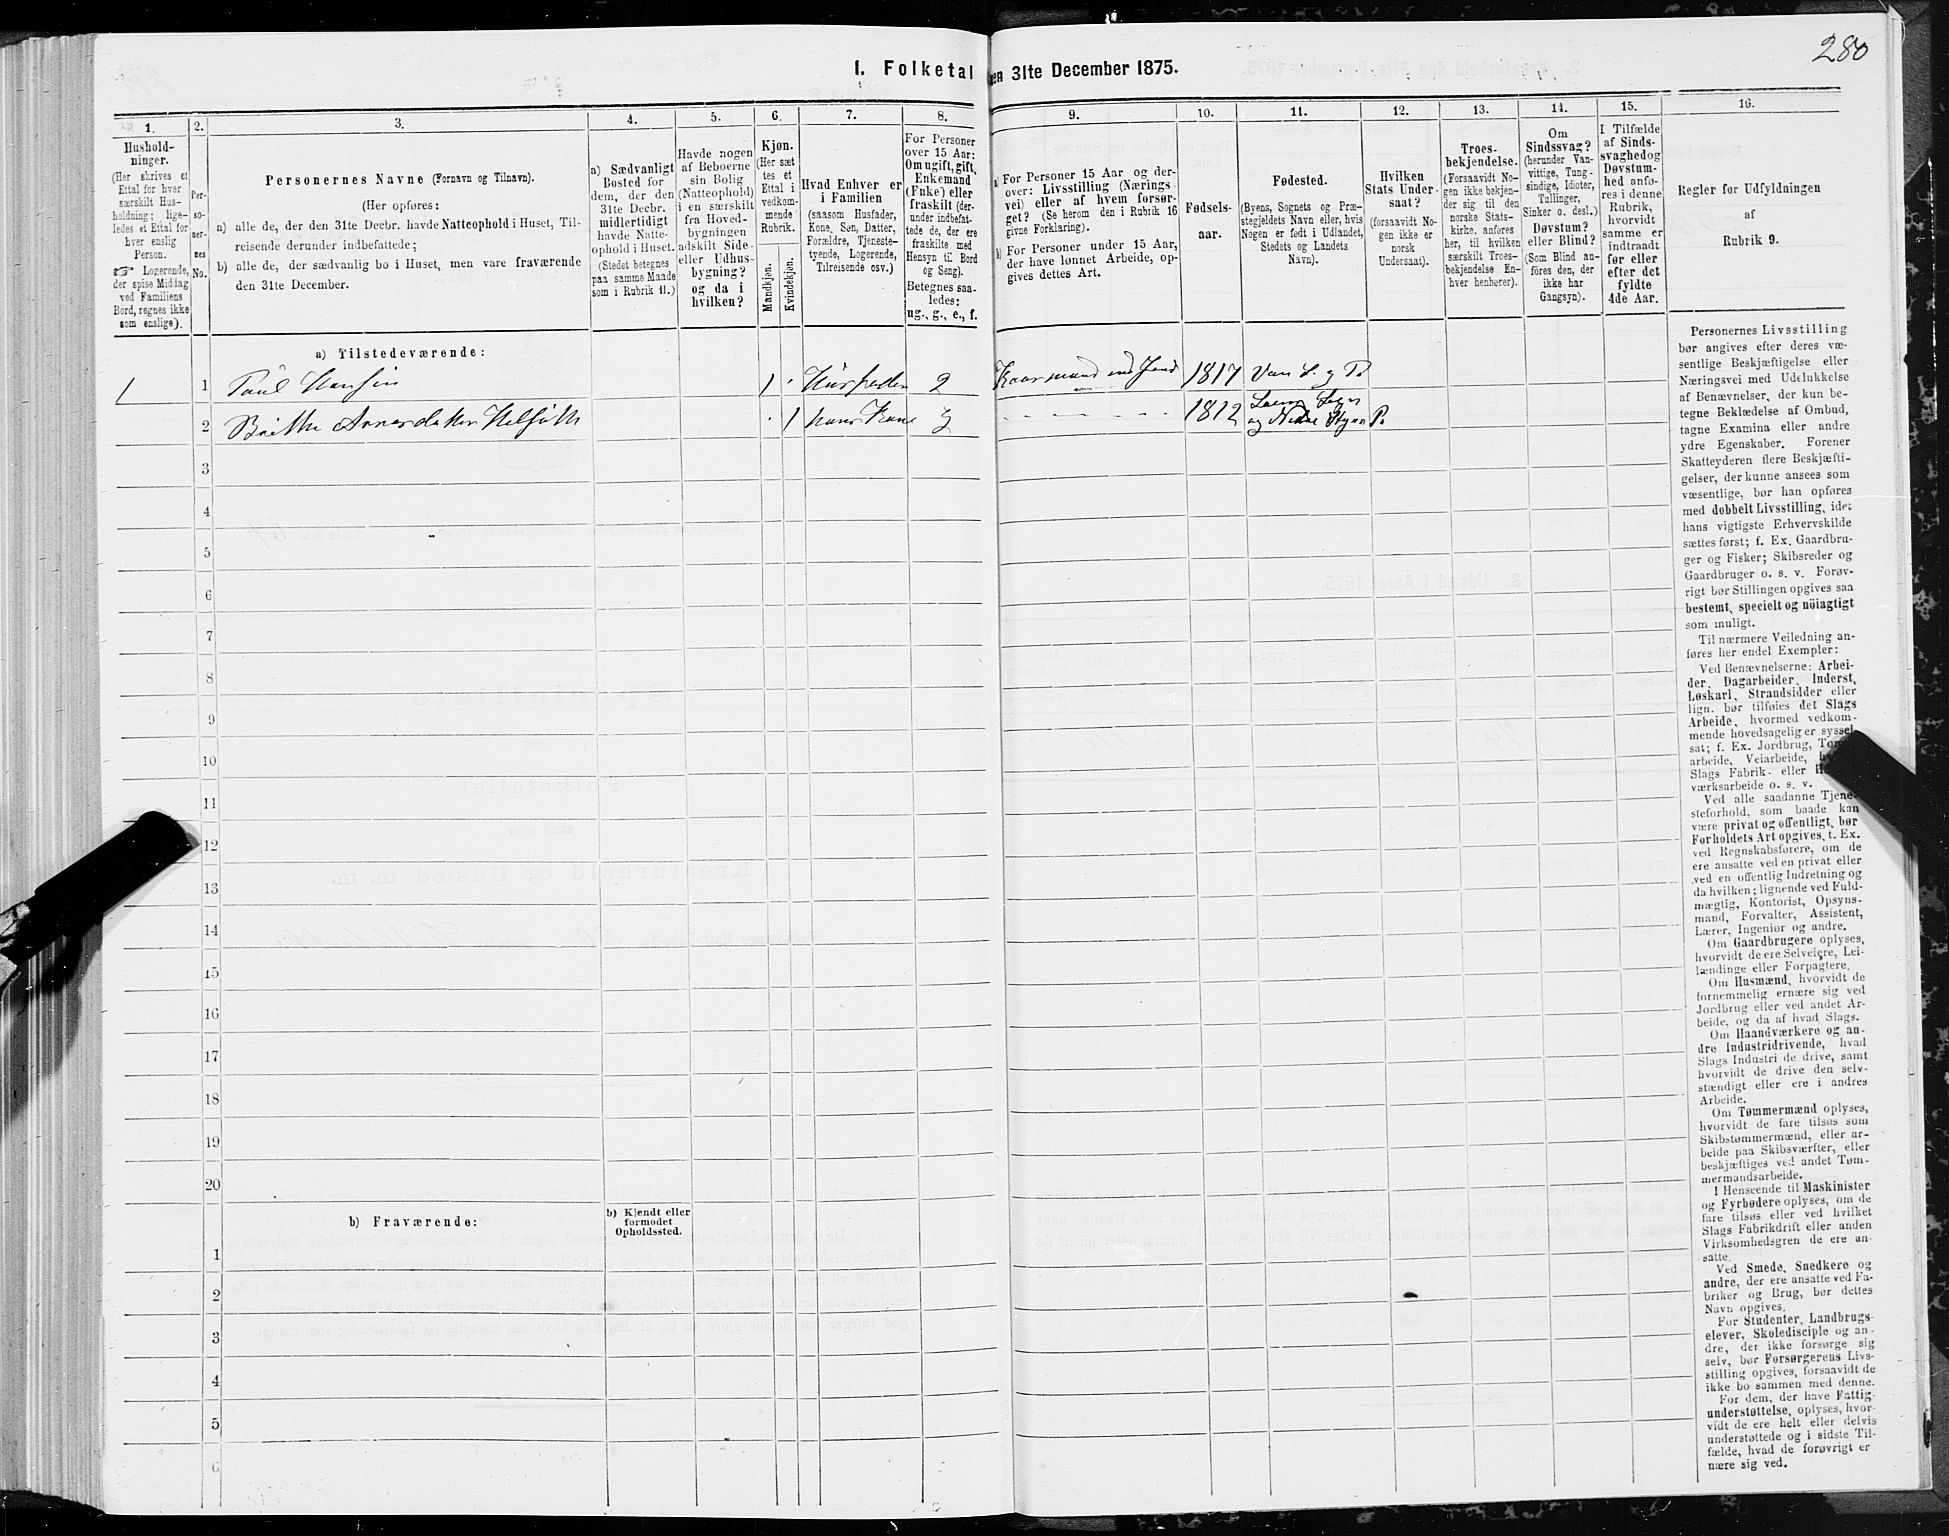 280
1. Folketal
den 31te December 1875.
1. 2. 3. 4. 5. 6. 7. 8. 9. 10. 11. 12. 13. 14. 15. 16.
Hushold-
ninger.
(Her skrives et
Ettal for hver
særskilt Hus-
holdning; lige-
ledes et Ettal for
hver enslig
Person.
☞ Logerende,
der spise Middag
ved Familiens
Bord, regnes ikke
som enslige).
Per-
so-
ner-
nes
No.
Personernes Navne (Fornavn og Tilnavn).
(Her opføres:
a) alle de, der den 31te Decbr. havde Natteophold i Huset, Til-
reisende derunder indbefattede;
b) alle de, der sædvanlig bo i Huset, men vare fraværende
den 31te December.
a) Sædvanligt
Bosted for
dem, der den
31te Decbr.
midlertidigt
havde Natte-
ophold i Huset.
(Stedet betegnes
paa samme Maade
som i Rubrik 11.)
Havde nogen
af Beboerne
sin Bolig
(Natteophold)
i en særskilt
fra Hoved-
bygningen
adskilt Side-
eller Udhus-
bygning?
og da i
hvilken?
Kjøn.
(Her sæt
tes et
Ettal i
vedkom-
mende
Rubrik.
Mandkjøn.
Kvindekjøn.
Hvad Enhver er
i Familien
(saasom Husfader,
Kone, Søn, Datter,
Forældre, Tjeneste-
tyende, Logerende,
Tilreisende osv.)
For Personer
over 15 Aar:
Om ugift, gift,
Enkemand
(Enke) eller
fraskilt (der-
under indbefat-
tede de, der ere
fraskilte med
Hensyn til Bord
og Seng).
Betegnes saa-
ledes:
ug., g., e., f.
a) For Personer 15 Aar og der-
over: Livsstilling (Nærings
vei) eller af hvem forsør-
get? (Se herom den i Rubrik 16
givne Forklaring).
b) For Personer under 15 Aar,
der have lønnet Arbeide, op-
gives dettes Art.
Fødsels-
aar.
Fødested.
(Byens, Sognets og Præ-
stegjeldets Navn eller, hvis
Nogen er født i Udlandet,
Stedets og Landets
Navn).
Hvilken
Stats Under-
saat?
(forsaavidt No-
gen ikke er
norsk
Undersaat).
Troes-
bekjendelse.
(Forsaavidt No-
gen ikke bekjen-
der sig til den
norske Stats-
kirke, anføres
her, til hvilken
særskilt Troes-
bekjendelse En-
hver henhører).
Om
Sindssvag?
(herunder Van-
vittige, Tung-
sindige, Idioter,
Tullinger,
Sinker o. desl.)
Døvstum?
eller Blind?
(Som Blind an-
føres den, der
ikke har
Gangsyn).
I Tilfælde
af Sinds-
svaghed og
Døvstum-
hed anfø-
res i denne
Rubrik,
hvorvidt
samme er
indtraadt
før eller
efter det
fyldte
4de Aar.
Regler for Udfyldningen
af
Rubrik 9.
a) Tilstedeværende:
1 1 Paul Hansen 1 Husfader 2 1817
2 Brithe 1 hans Kone 1812
3
4
5
6
7
8
9
10
11
12
13
14
15
16
17
18
19
20
b) Fraværende:
b) Kjendt eller
formodet
Opholdssted.
1
2
3
4
5
6
Personernes Livsstilling
bør angives efter deres væ-
sentlige Beskjæftigelse eller
Næringsvei med Udelukkelse
af Benævnelser, der kun be-
tegne Beklædelse af Ombud,
tagne Examina eller andre
ydre Egenskaber. Forener
Skatteyderen flere Beskjæfti-
gelser, der kunne ansees som
væsentlige, bør han opføres
med dobbelt Livsstilling, idet
hans vigtigste Erhvervskilde
sættes først; f. Ex. Gaardbru-
ger og Fisker; Skibsreder og
Gaardbruger o. s. v. Forøv-
rigt bør Stillingen opgives saa
bestemt, specielt og nöiagtigt
som muligt.
Til nærmere Veiledning an-
føres her endel Exempler:
Ved Benævnelserne: Arbei-
der, Dagarbeider, Inderst,
Løskarl, Strandsidder eller
lign. bør tilføies det Slags
Arbeide, hvormed vedkom-
mende hovedsagelig er syssel
sat; f. Ex. Jordbrug,
arbeide, Veiarbeide,
Slags Fabrik- eller
værksarbeide o. s. v.
Ved alle saadanne Tjene-
steforhold, som baade kan
være privat og offentligt, bør
Forholdets Art opgives, t. Ex.
ved Regnskabsførere, om de
ere ansatte ved en privat eller
ved en offentlig Indretning og
da hvilken; lignende ved Fuld-
mægtig, Kontorist, Opsyns-
mand, Forvalter, Assistent,
Lærer, Ingeniør og andre.
Om Gaardbrugere oplyses,
hvorvidt de ere Selveiere, Lei-
lændinge eller Forpagtere.
Om Husmænd, hvorvidt de
fornemmelig ernære sig ved
Jordbrug eller ved andet Ar-
beide, og da af hvad Slags.
Om Haandværkere og an-
dre Industridrivende, hvad
Slags Industri de drive, samt
hvorvidt de drive den selv-
stændigt eller ere i andres
Arbeide.
Om Tømmermænd oplyses,
hvorvidt de fare tilsøs som
Skibstømmermænd, eller ar-
beide paa Skibsværfter, eller
beskjæftiges ved andet Tøm-
mermandsarbeide.
I Henseende til Maskinister
og Fyrbødere oplyses, om de
fare tilsøs eller ved hvilket
Slags Fabrikdrift eller anden
Virksomhedsgren de ere an-
satte.
Ved Smede, Snedkere og
andre, der ere ansatte ved Fa-
briker og Brug, bør dettes
Navn opgives.
For Studenter, Landbrugs-
elever, Skoledisciple og an-
dre, der ikke forsørge sig
selv, bør Forsørgerens Livs-
stilling opgives, forsaavidt de
ikke bo sammen med denne.
For dem, der have Fattig-
understøttelse, oplyses, hvor-
vidt de ere helt eller delvis
understøttede og i sidste Til-
fælde, hvad de forøvrigt er
nære sig ved.